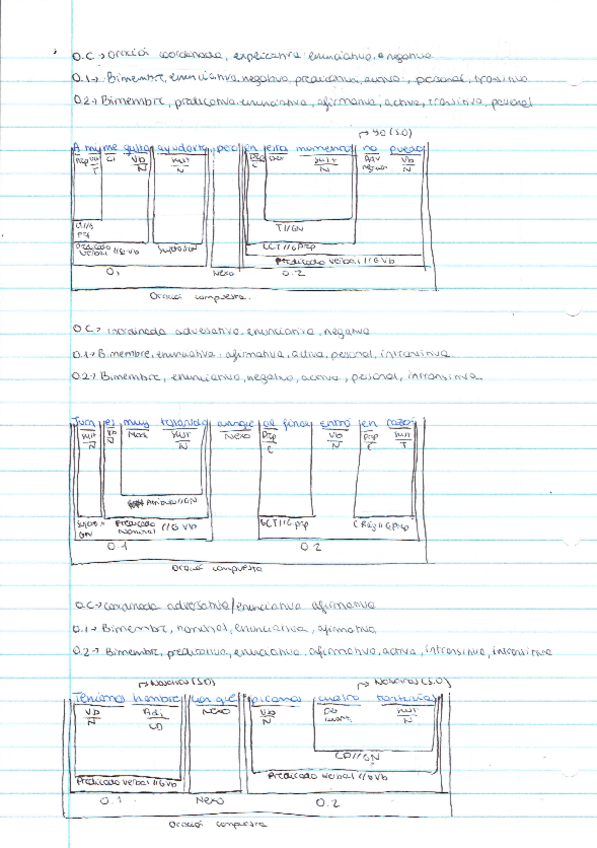 O.C → Oració coordenada, explicativa enunciativa, negativa
O.1 → Bimembre, enunciativa, negativa, predicativa, activa, personal, transitiva
O.2 → Bimembre, predicativa enunciativa, afirmativa, activa, transitiva, personal
→ yo (S.O)
A mi me gusta ayudarte pero en este momento no puedo
Prep CI Vb Sust Det Sust Adv Vb
T N N N negación N
T//GN
CCT//GPrep
Predicado verbal //GVb Sujeto//GN Predicado verbal //GVb
O.1 Nexo O.2
Oració compuesta
O.C → coordinada adversativa enunciativa, negativa
O.1 → Bimembre, enunciativa, afirmativa, activa, personal, intransitiva
O.2 → Bimembre, enunciativa, negativa, activa, personal, intransitiva
Juan es muy testarudo aunque al final entró en razón
Sust Vb Mod Sust Nexo Prep Vb Prep Sust
N N N E N E T
Atributo//GN
Sujeto//GN Predicado Nominal //GVb CCT//GPrep CRég//GPrep
O.1 O.2
Oració compuesta
O.C → coordinada adversativa/enunciativa afirmativa
O.1 → Bimembre, nominal, enunciativa, afirmativa
O.2 → Bimembre, predicativa, enunciativa, afirmativa, activa, intransitiva, intransitiva
→ Nosotros (S.O) → Nosotros (S.O)
Teníamos hambre que picamos tortillas
Vb Adj Nexo Vb Det Sust
N CD N N
CD//GN
Predicado verbal //GVb Predicado verbal //GVb
O.1 Nexo O.2
Oració compuesta